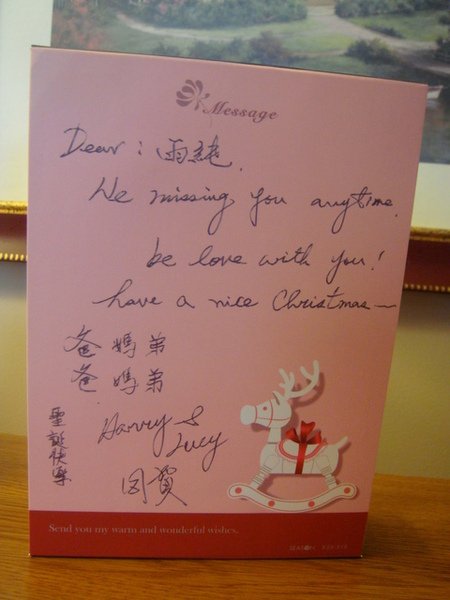 Message
Dear: 雨純.
We missing you anytime.
be love with you!
have a nice Christmas—
爸媽弟
爸媽弟
Harry &
Lucy
同賀
聖誕快樂
Send you my warm and wonderful wishes.